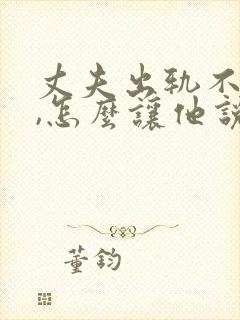 丈夫出軌不
,怎麼讓他說
董鈞